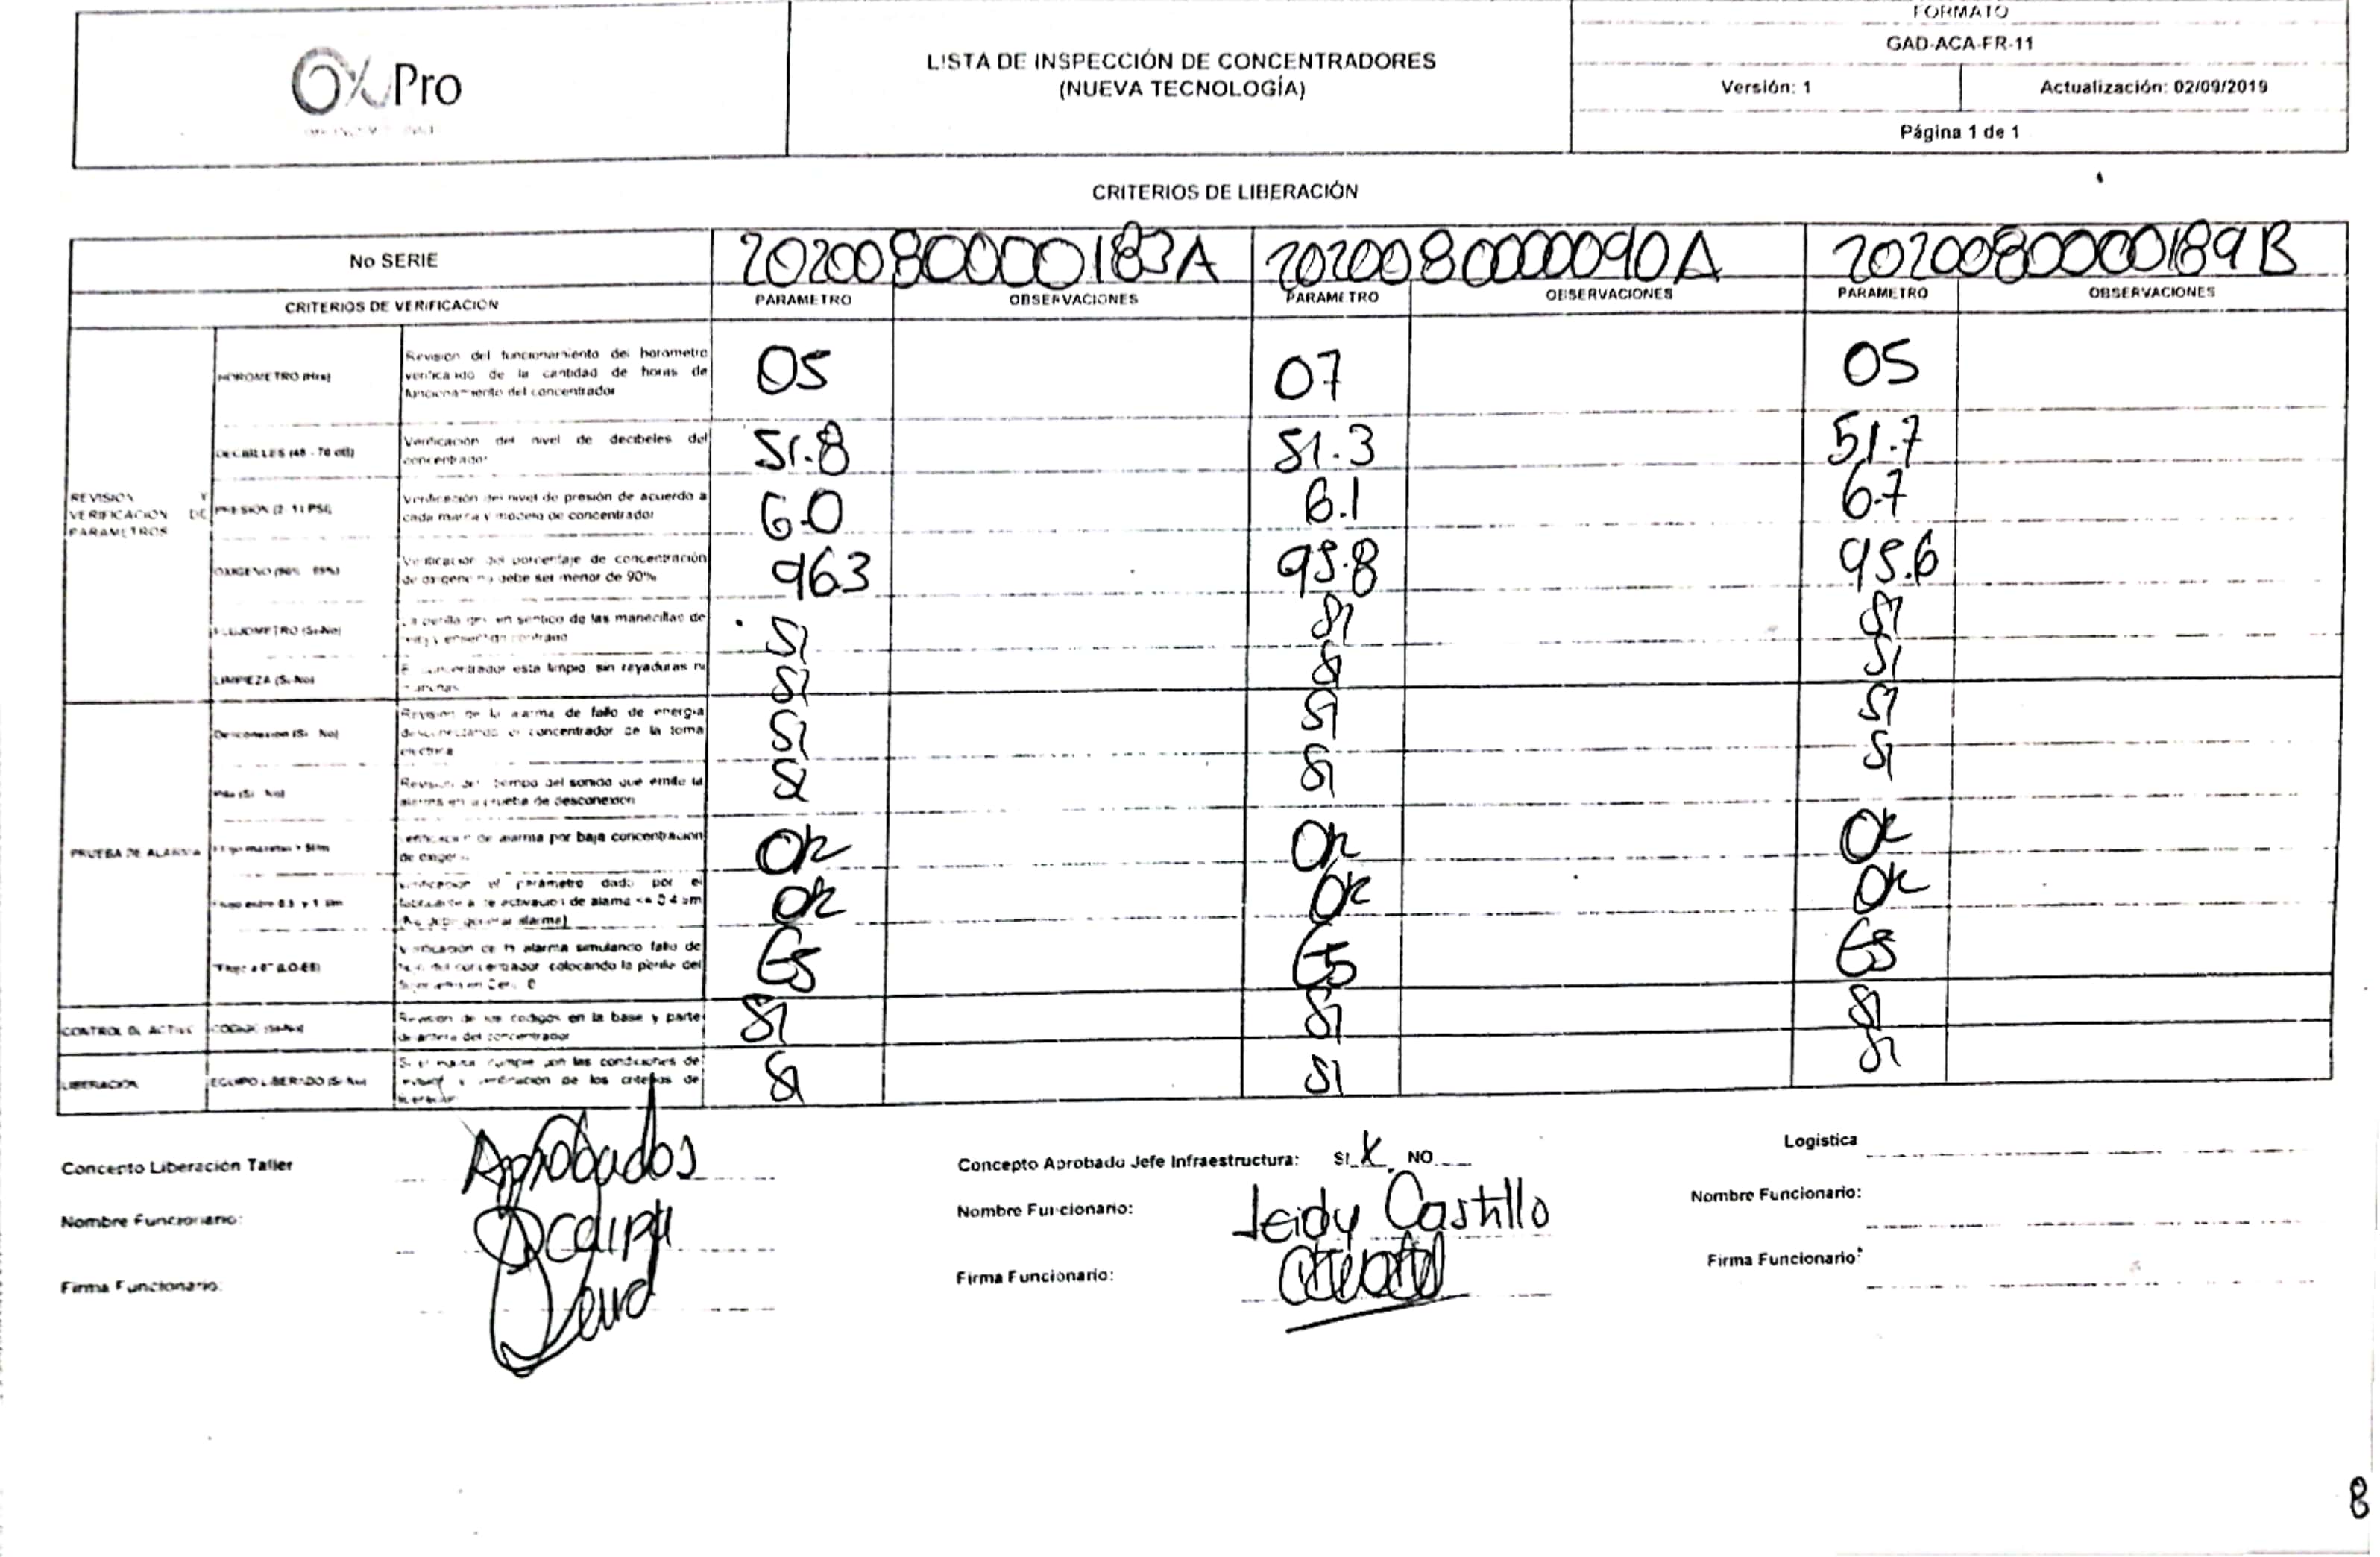 OxPro
LISTA DE INSPECCIÓN DE CONCENTRADORES
(NUEVA TECNOLOGÍA)
FORMATO
GAD-ACA-FR-11
Versión: 1 Actualización: 02/09/2019
Página 1 de 1
CRITERIOS DE LIBERACIÓN
No SERIE 2020080000183A 2020080000090A 2020080000189B
CRITERIOS DE VERIFICACION PARAMETRO OBSERVACIONES PARAMETRO OBSERVACIONES PARAMETRO OBSERVACIONES
REVISION Y
VERIFICACION DE
PARAMETROS
HOROMETRO (Hrs)
Revisión del funcionamiento del horometro
verificando de la cantidad de horas de
funcionamiento del concentrador
05 07 05
DECIBELES (48 - 70 dB)
Verificación del nivel de decibeles del
concentrador
51.8 51.3 51.7
PRESION (2 - 11 PSI)
Verificación del nivel de presión de acuerdo a
cada marca y modelo de concentrador
6.0 6.1 6.7
OXIGENO
Verificación del porcentaje de concentración
de oxigeno no debe ser menor de 90%
963 95.8 95.6
FLUJOMETRO (Si-No)
La perilla gira en sentido de las manecillas de
SI SI SI
LIMPIEZA (Si-No)
concentrador esta limpio sin rayaduras ni
manchas
SI SI SI
PRUEBA DE ALARMA
Desconexion (Si - No)
Revisión de la alarma de fallo de energia
desconectando el concentrador de la toma
electrica
SI SI SI
(Si - No)
Revisión del tiempo del sonido que emite la
alarma en la prueba de desconexion
SI SI SI
Verificación de alarma por baja concentracion
de oxigeno
OK OK OK
Verificación el parametro dado por el
fabricante
(No debe generar alarma)
OK OK OK
Verificación de la alarma simulando fallo de
concentrador colocando la perilla del
E5 E5 E5
CONTROL DE ACTIVO CODIGO (Si-No)
Revision de los codigos en la base y parte
delantera del concentrador
SI SI SI
LIBERACION EQUIPO LIBERADO (Si-No)
cumple con las condiciones de
verificacion de los criterios de
liberacion
SI SI SI
Concepto Liberación Taller Aprobados
Nombre Funcionario:
Firma Funcionario:
Concepto Aprobado Jefe Infraestructura: SI X NO
Nombre Funcionario: Leidy Castillo
Firma Funcionario:
Logistica
Nombre Funcionario:
Firma Funcionario:
8